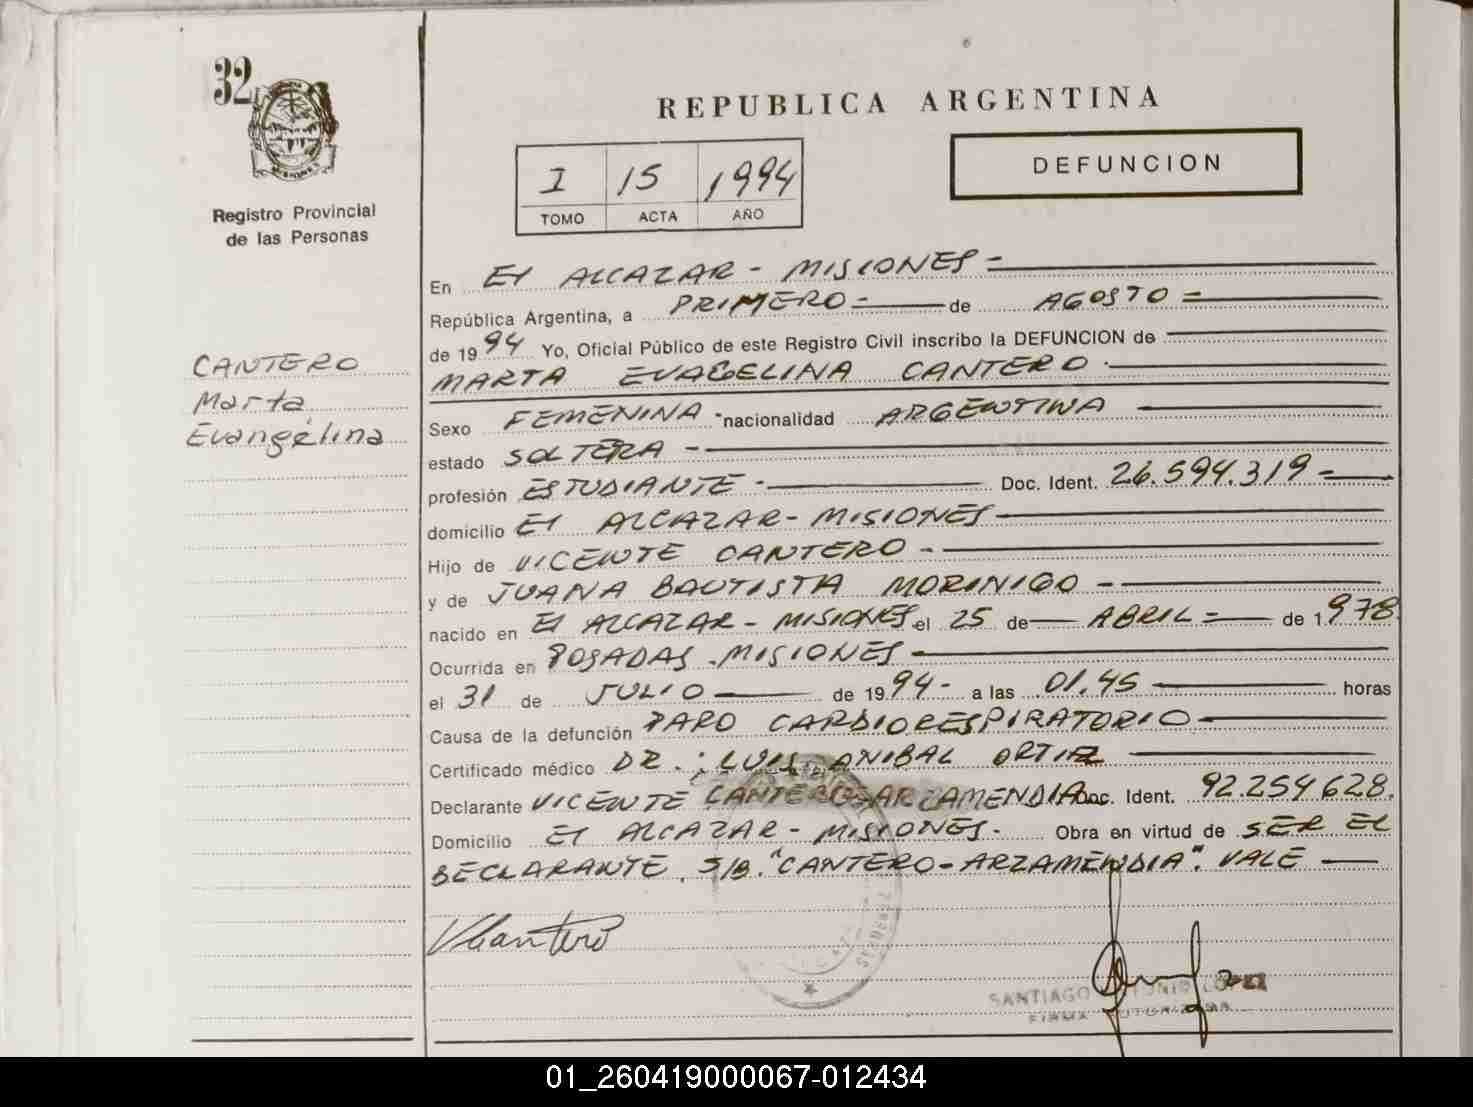 32
MISIONES
Registro Provincial
de las Personas
CANTERO
Marta
Evangélina
REPUBLICA ARGENTINA
I 15 1994
TOMO ACTA AÑO
DEFUNCION
En El ALCAZAR - MISIONES =
República Argentina, a PRIMERO = de AGOSTO =
de 1994 Yo, Oficial Público de este Registro Civil inscribo la DEFUNCION de
MARTA EVAGELINA CANTERO
Sexo FEMENINA - nacionalidad ARGENTINA
estado SOLTERA -
profesión ESTUDIANTE - Doc. Ident. 26.594.319 =
domicilio El ALCAZAR - MISIONES
Hijo de VICENTE CANTERO -
y de JUANA BAUTISTA MORINIGO -
nacido en El ALCAZAR - MISIONES el 25 de ABRIL = de 1978
Ocurrida en POSADAS - MISIONES
el 31 de JULIO de 1994 - a las 01.45 horas
Causa de la defunción PARO CARDIORESPIRATORIO
Certificado médico DR. : LUIS ANIBAL ORTIZ
Declarante VICENTE CANTEROS ARZAMENDIA Doc. Ident. 92.254628.
Domicilio El ALCAZAR - MISIONES - Obra en virtud de SER EL
DECLARANTE. S/B. "CANTERO-ARZAMENDIA". VALE
VCantero
SANTIAGO ANTONIO LOPEZ
FIRMA AUTORIZADA
01_260419000067-012434